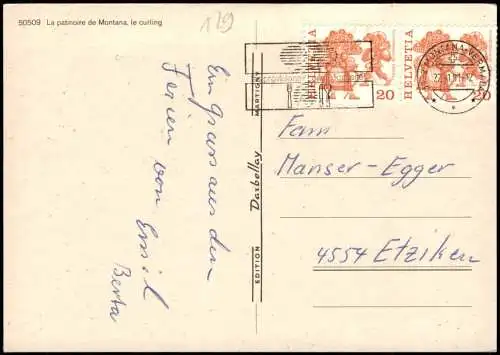 90509 La patinoire de Montana, le curling
129
Ein Gruss aus den
Ferien von Emil
Berta
EDITION Darbellay MARTIGNY
HELVETIA 20
HELVETIA 20
Fam
Manser-Egger
4554 Etziken